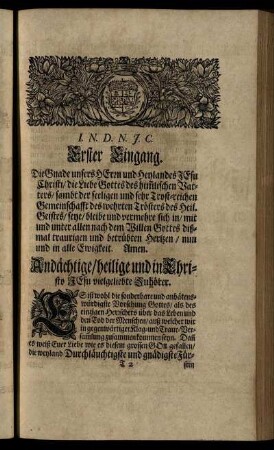 I. N. D. N. J. C.
Erster Eingang.
Die Gnade unsers HErrn und Heylandes JEsu
Christi / die Liebe Gottes des himlischen Vat-
ters / sambt der seeligen und sehr Trost-reichen
Gemeinschafft des wehrten Trösters des Heil.
Geistes / seye / bleibe und vermehre sich in / mit
und unter allen nach dem Willen Gottes diß-
mal traurigen und betrübten Hertzen / nun
und in alle Ewigkeit. Amen.
Andächtige / heilige und in Chri-
sto JEsu vielgeliebte Zuhörer.
ES ist wohl die sonderbare und anbätens-
würdigste Vorsehung Gottes / als des
einigen Herrschers über das Leben und
den Tod der Menschen / auß welcher wir
in gegenwärtiger Klag- und Traur-Ver-
sammlung zusammen kommen seyn. Dañ
es weiß Euer Liebe wie es diesem grossen GOtt gefallen /
die weyland Durchläuchtigste und gnädigste Für-
T 2 stin